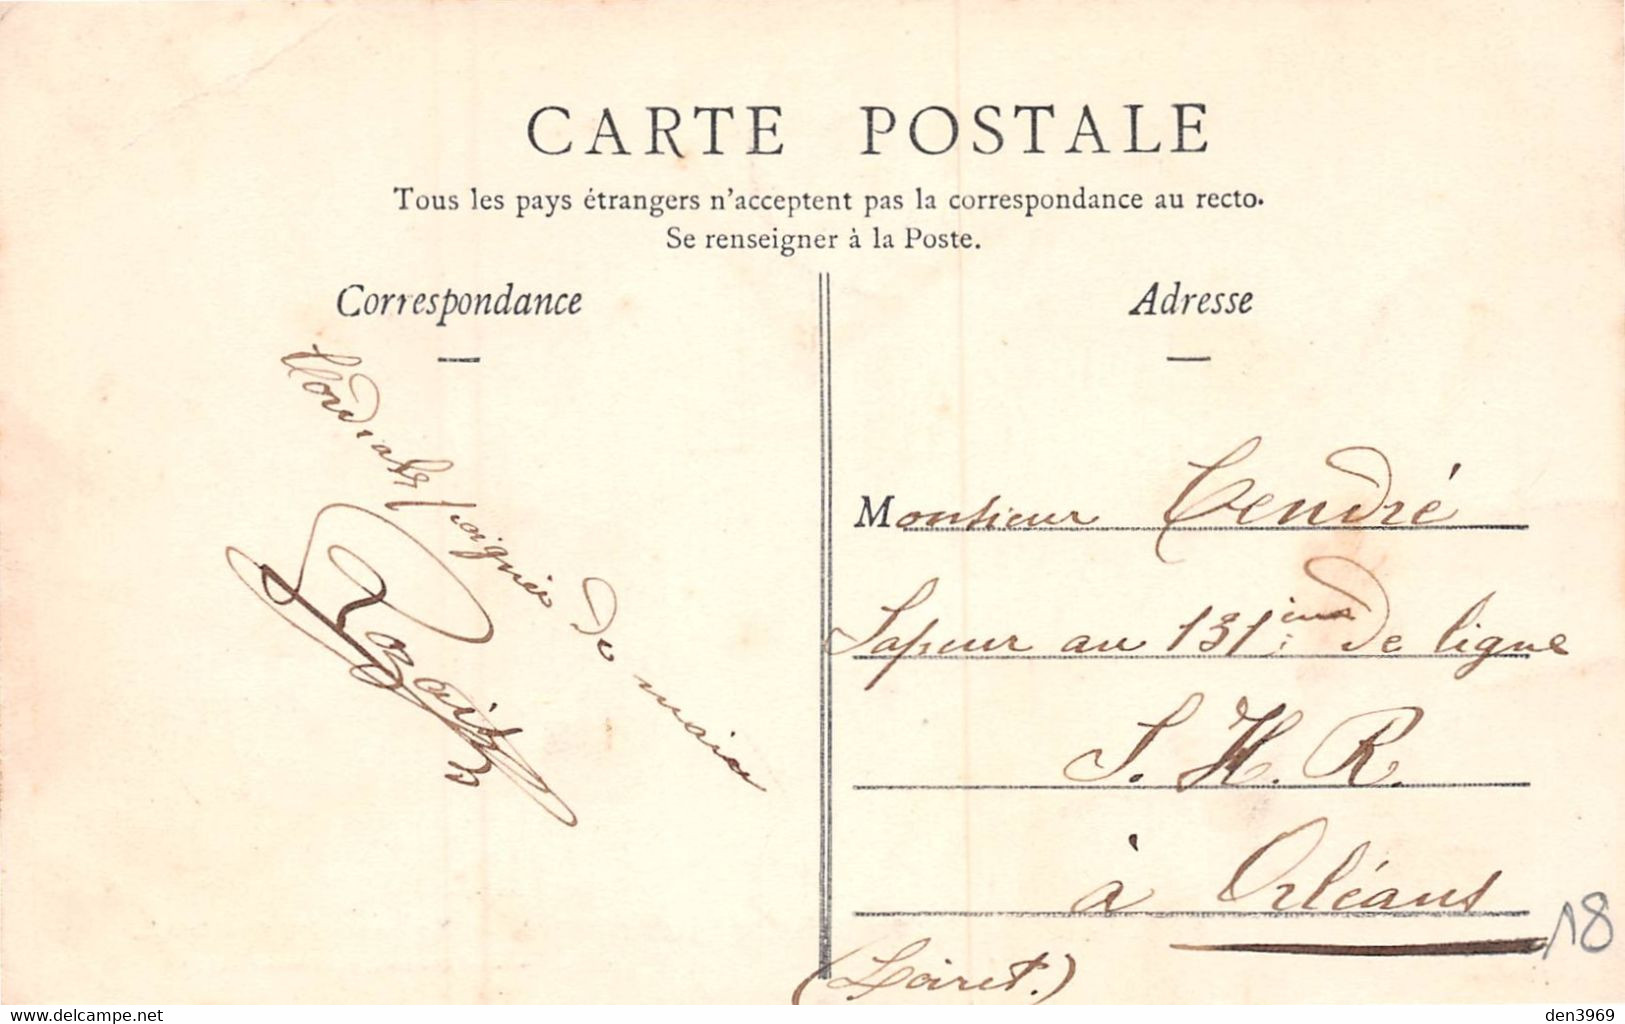 CARTE POSTALE
Tous les pays étrangers n'acceptent pas la correspondance au recto.
Se renseigner à la Poste.
Correspondance
Cordiales poignées de mains
Adresse
Monsieur Tendré
Sapeur au 131ième de ligne
S. H. R.
à Orléans
(Loiret.)
18
www.delcampe.net
den3969